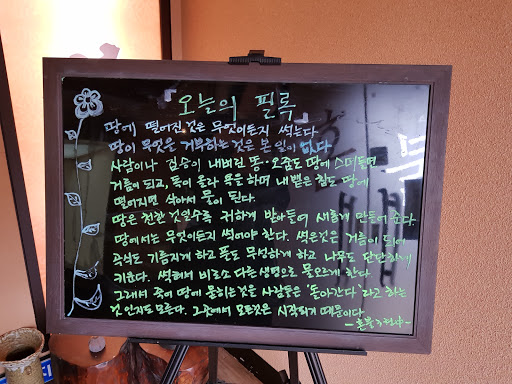 오늘의 필록
땅에 떨어진 것은 무엇이든지 썩는다
땅이 무엇은 거부하는 것은 본 일이 없다
사람이나 짐승이 내버린 똥·오줌도 땅에 스며들면
거름이 되고, 독이 올라 욕을 하며 내뱉은 침도 땅에
떨어지면 삭아서 물이 된다.
땅은 천한 것일수록 귀하게 받아들여 새롭게 만들어 준다.
땅에서는 무엇이든지 썩어야 한다. 썩은것은 거름이 되어
곡식도 기름지게 하고 풀도 무성하게 하고 나무도 단단하게
키운다. 썩혀서 비로소 다른 생명으로 물오르게 한다.
그래서 죽어 땅에 묻히는것을 사람들은 '돌아간다' 라고 하는
것 인지도 모른다. 그곳에서 모든것은 시작되기 때문이다.
-혼불 3권中-